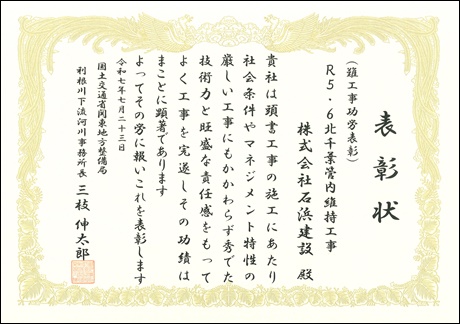 表彰状
(難工事功労表彰)
R5・6北千葉管内維持工事
株式会社石浜建設 殿
貴社は頭書工事の施工にあたり
社会条件やマネジメント特性の
厳しい工事にもかかわらず秀でた
技術力と旺盛な責任感をもって
よく工事を完遂しその功績は
まことに顕著であります
よってその労に報いこれを表彰します
令和七年七月二十三日
国土交通省関東地方整備局
利根川下流河川事務所長 三枝伸太郎